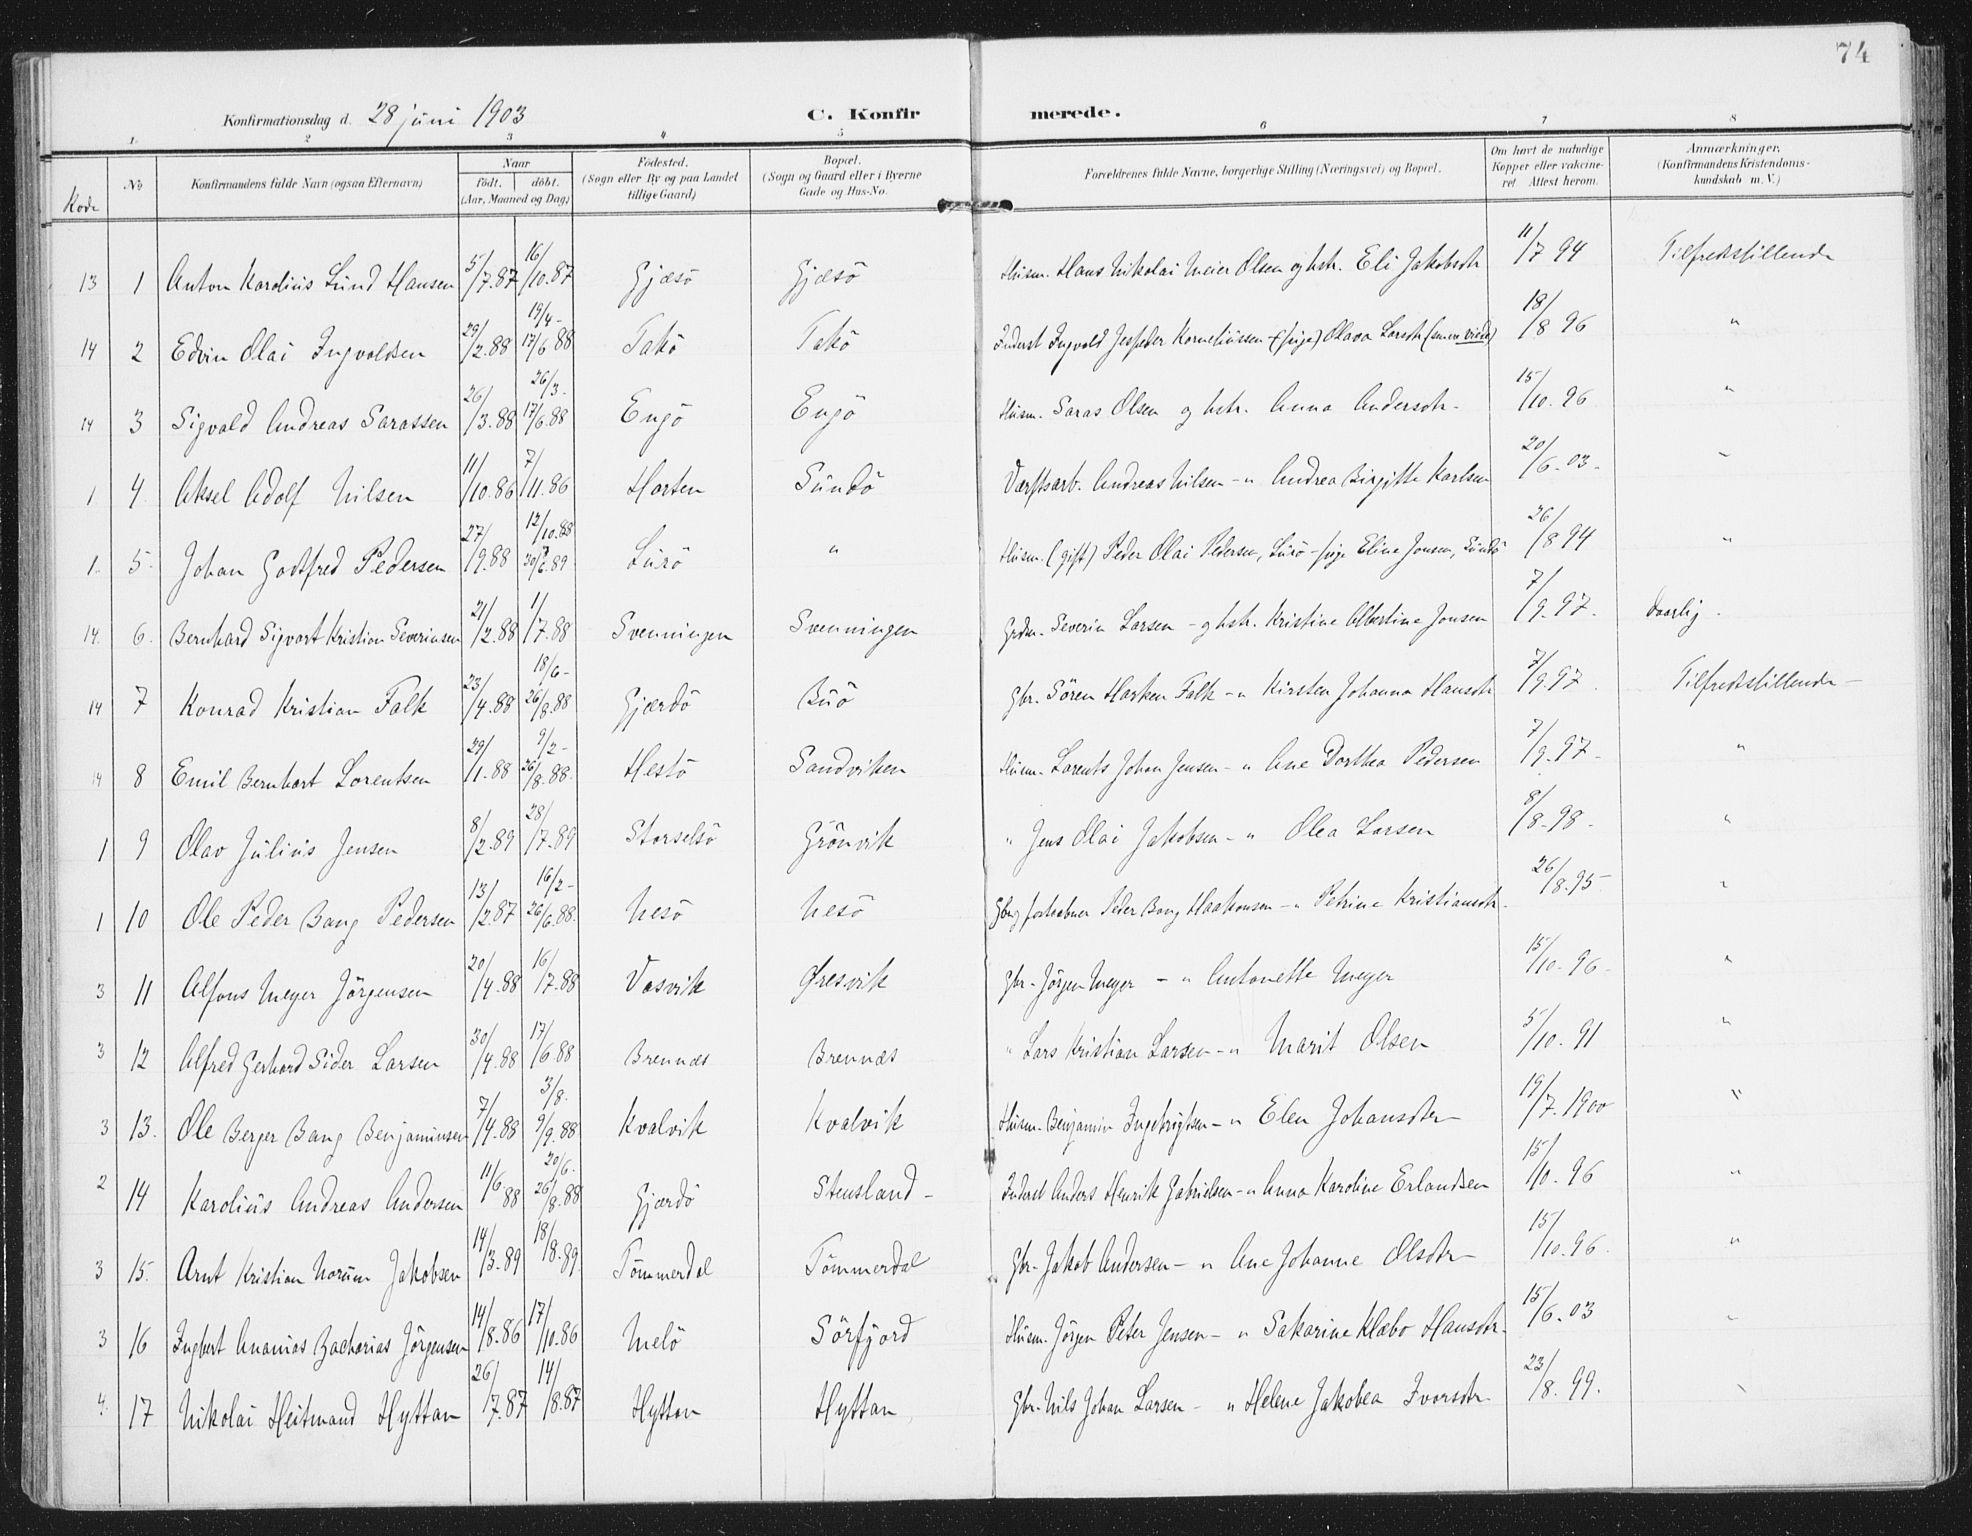 74
Konfirmationsdag d. 28 juni 1903 C. Konfir merede.
1. 2 3 4 5 6 7 8
Kode No Konfirmandens fulde Navn (ogsaa Efternavn) Naar født. døbt. (Aar, Maaned og Dag) Fødested. (Sogn eller By og paa Landet tillige Gaard) Bopæl. (Sogn og Gaard eller i Byerne Gade og Hus-No. Forældrenes fulde Navne, borgerlige Stilling (Næringsvei) og Bopæl. Om havt de naturlige Kopper eller vakcineret Attest herom. Anmærkninger. (Konfirmandens Kristendomskundskab m. V.)
13 1 Anton Karolius Lund Hansen 5/7.87 16/10.87 Gjæsö Gjæsö Husm. Hans Nikolai Meier Olsen og hstr. Eli Jakobsdtr 11/7 94 Tilfredsstillende
14 2 Edvin Olai Ingvoldsen 29/2.88 19/4- 17/6 88 Takö Takö Inderst Ingvold Jespeder Korneliussen - (pige) Olava Larsdtr (senere viede) 18/8 96 "
14 3 Sigvald Andreas Sarassen 26/3.88 26/3- 17/6.88 Engö Engö Husm. Saras Olsen og hstr. Anna Andersdtr- 15/10.96 "
1 4. Aksel Adolf Nilsen 11/10.86 7/11.86 Horten Sundö Værftsarb. Andreas Nilsen - " Andrea Birgitte Karlsen 20/6.03- "
1. 5. Johan Godtfred Pedersen 27/9.88 12/10.88 30/6.89 Lurö " Husm. (gift) Peder Olai Pedersen, Lurö - pige Eline Jonsen, Sundö 26/8 94 "
14. 6. Bernhard Sigvart Kristian Severinsen 21/2.88 1/7.88 Svenningen Svenningen Grdm. Severin Larsen - og hstr. Kristine Albertine Jonsen 7/9.97. daarlig.
14 7 Konrad Kristian Falk 23/4.88 18/6- 26/8.88 Gjærdö Buö Gbr. Sören Harken Falk - " Kirsten Johanna Hansdtr 7/9.97. Tilfredsstillende-
14 8 Emil Bernhart Lorentsen 29/1.88 9/2- 26/8.88. Hestö Sandviken Husm. Lorents Johan Jensen - " Ane Dorthea Pedersen 7/9.97- "
1 9 Olav Julius Jensen 8/2.89 28/7.89 Storselsö Grönvik " Jens Olai Jakobsen - " Olea Larsen 8/8-98- "
1 10 Ole Peder Bang Pedersen 13/12.87 16/2- 26/6.88. Nesö Nesö Peder Bang Haakonsen - " Petrine Kristiansdtr. 26/8.95 "
3 11 Alfons Meyer Jörgensen 20/4.88 16/7.88 Vasvik Øresvik Gbr- Jörgen Meyer - " Antonette Meyer 15/10-96- "
3 12 Alfred Gerhard Sider Larsen 30/4.88 17/6.88 Brennæs Brennæs " Lars Kristian Larsen - " Marit Olsen 5/10.91 "
3 13. Ole Berger Bang Benjaminsen 7/4.88 3/8. 9/9.88 Kvalvik Kvalvik Husm. Benjamin Ingebrigtsen - " Elen Johansdtr- 19/7.1900 "
2 14 Karolius Andreas Andersen 11/6 88 20/6- 26/8.88 Gjærdö Stensland- Inderst Anders Henrik Gabrielsen - " Anna Karoline Erlandsen 15/10.96 "
3 15. Arnt Kristian Norum Jakobsen 14/3.89 18/8.89 Tömmerdal Tömmerdal Gbr- Jakob Andersen - " Ane Johanne Olsdtr- 15/10.96. "
3 16 Ingbert Ananias Zacharias Jörgensen 14/8.86 17/10.86 Melö Sörfjord Husm. Jörgen Peter Jensen - " Sakarine Klæbo Hansdtr. 15/6.03 "
4. 17 Nikolai Heitmand Hyttan 26/7.87 14/8.87 Hyttan Hyttan Gbr- Nils Johan Larsen - " Helene Jakobea Ivarsdtr 23/8.99. "